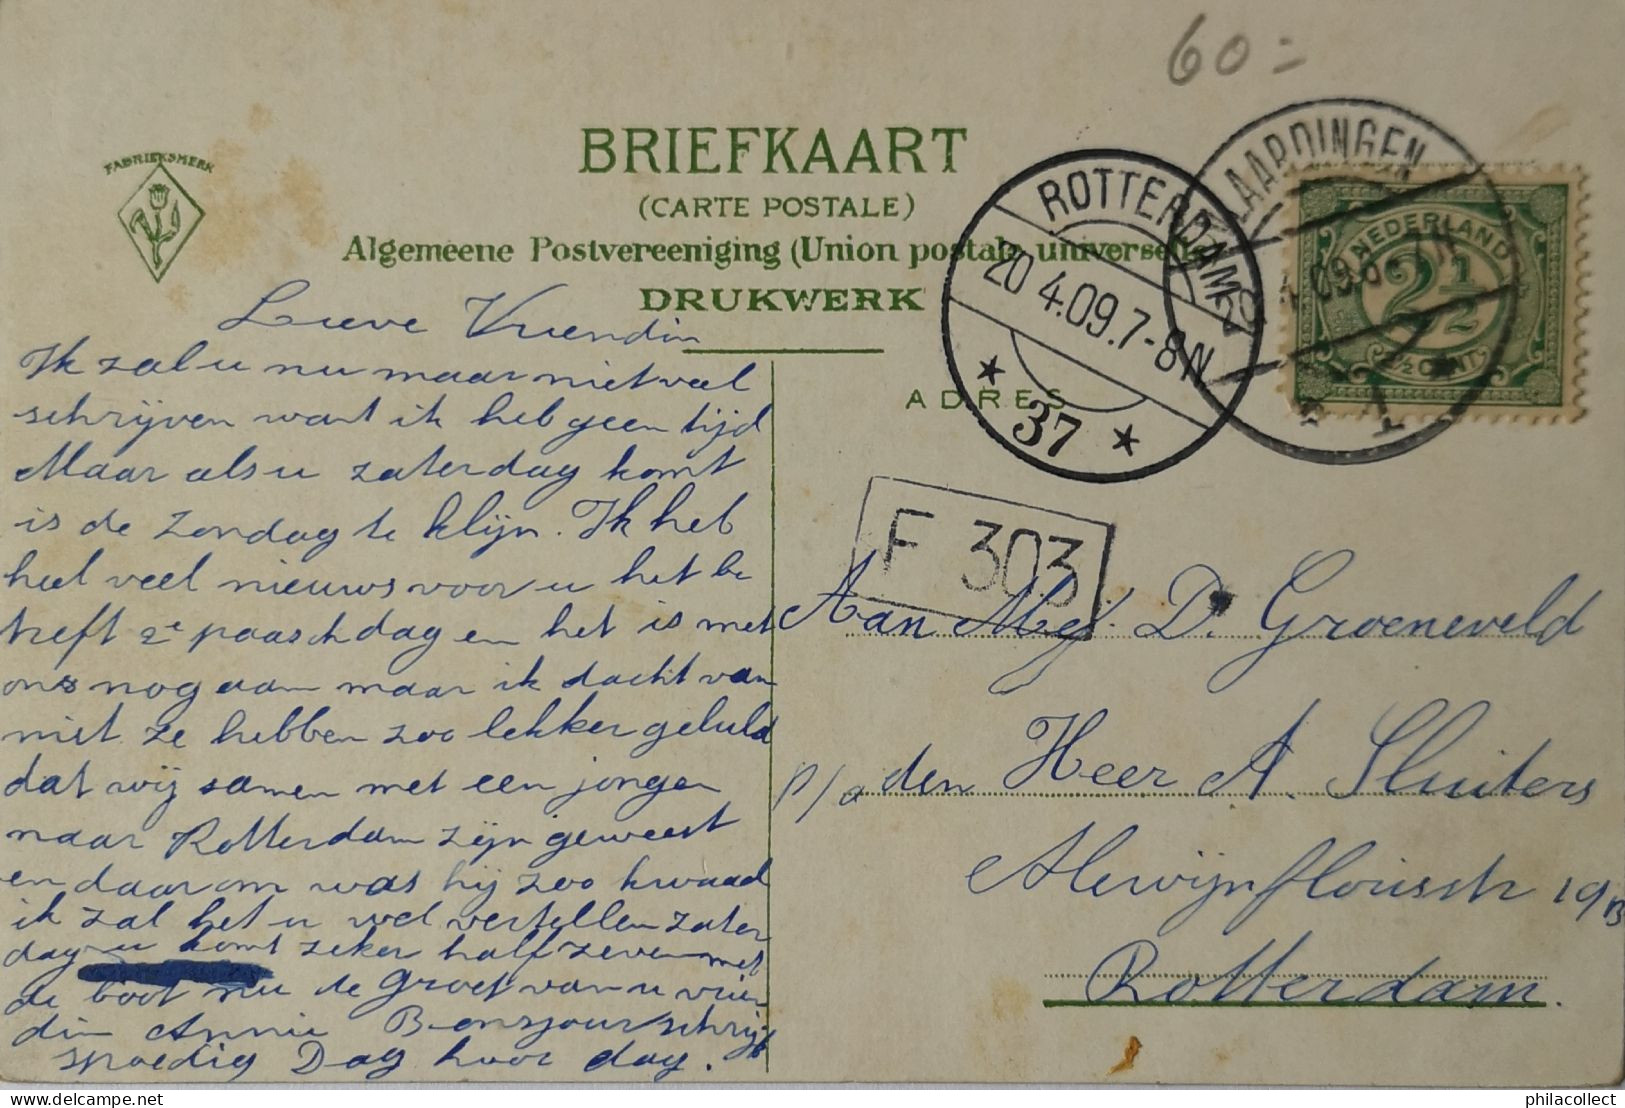 60 =
FABRIEKSMERK
BRIEFKAART
(CARTE POSTALE)
Algemeene Postvereeniging (Union postale universelle)
DRUKWERK
ADRES
ROTTERDAM
20 4.09.7-8N
37
VLAARDINGEN
4.09.6-7N
NEDERLAND
2 1/2
2½ CENT
F 303
Lieve Vriendin
Ik zal u nu maar niet veel
schrijven want ik heb geen tijd
Maar als u zaterdag komt
is de Zondag te klijn. Ik heb
heel veel nieuws voor u het be
treft 2e paaschdag en het is met
ons nog aan maar ik dacht van
niet ze hebben zoo lekker geluld
dat wij samen met een jongen
naar Rotterdam zijn geweest
en daarom was hij zoo kwaad
ik zal het u wel vertellen zater
dag u komt zeker half zeven met
de boot nu de Groet van u vrien
din Annie Bonsjour schrijf
spoedig Dag hoor dag.
Aan Mej. D. Groeneveld
p/a den Heer A. Sluiters
Alewijnflorisstr 19B
Rotterdam.
philacollect